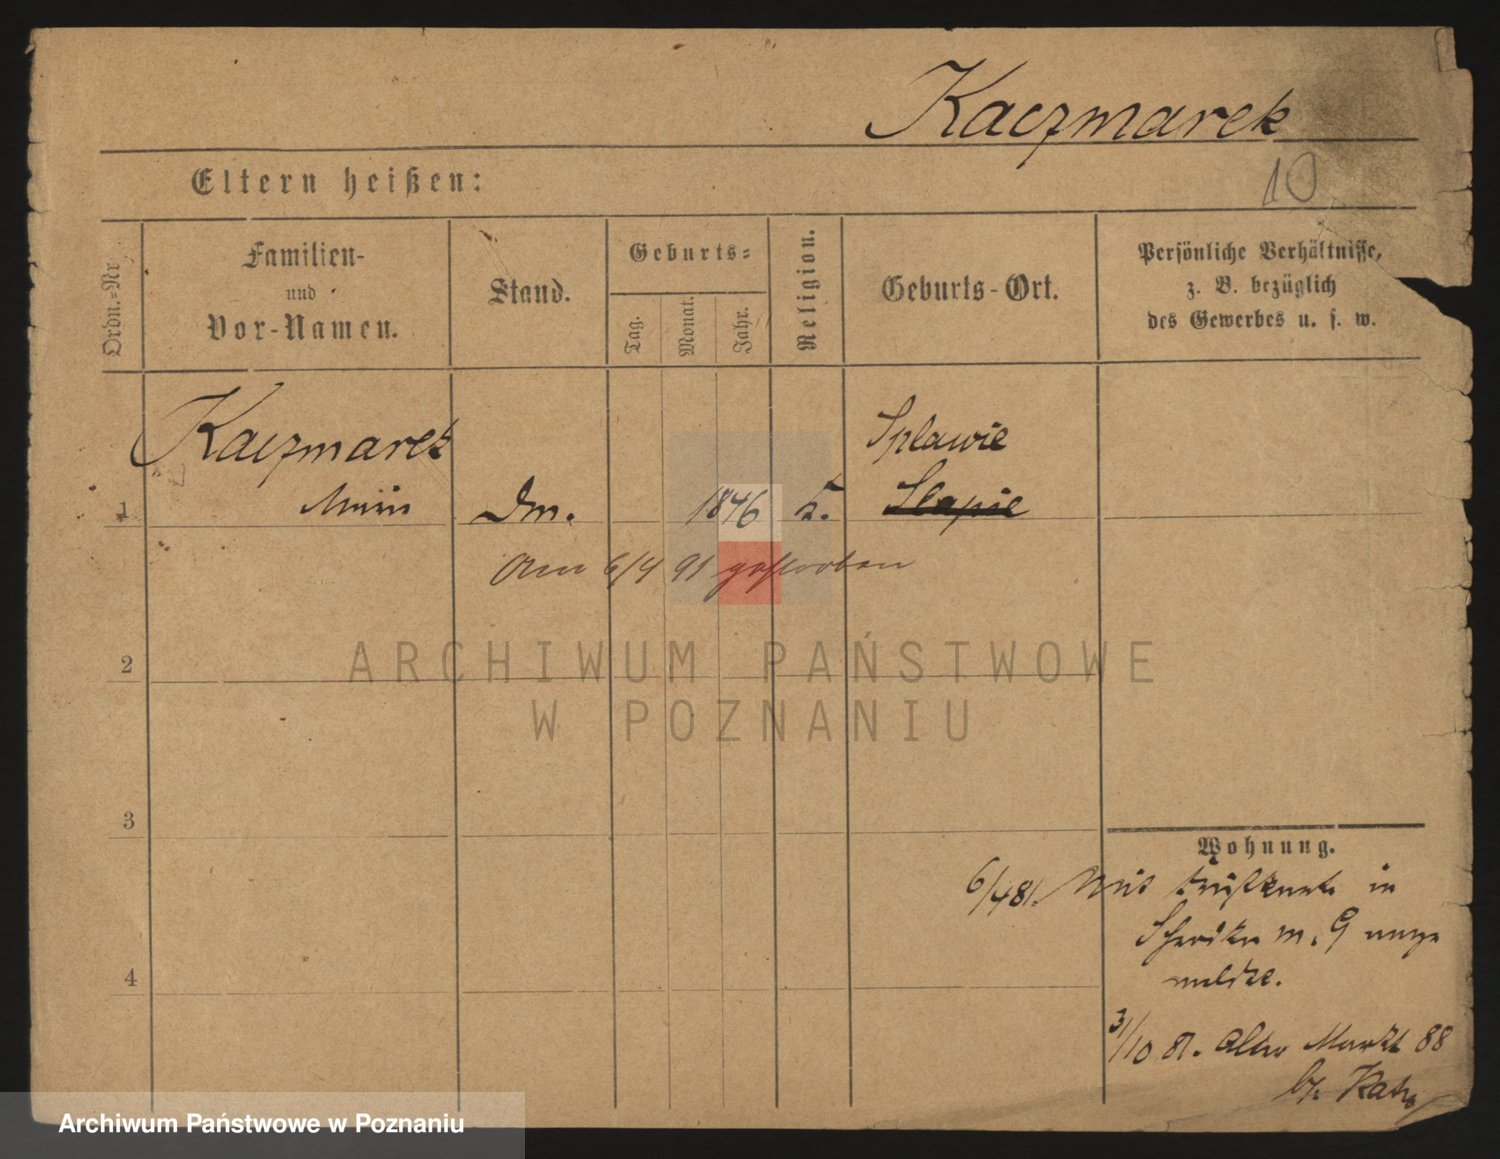 Kaczmarek
10
Eltern heißen:
Ordn.-Nr
Familien-
und
Vor-Namen.
Stand.
Geburts-
Tag.
Monat.
Jahr.
Religion.
Geburts-Ort.
Persönliche Verhältnisse,
z. B. bezüglich
des Gewerbes u. s. w.
Kaczmarek
Splawie
1
Dm. 1846 k. Slapie
Am 6/4 91 gestorben
ARCHIWUM PAŃSTWOWE
W POZNANIU
2
3
Wohnung.
6/4 81. in
m. 9 ange
meldet.
4
3/10 81. Alter Markt 88
b/.
Archiwum Państwowe w Poznaniu